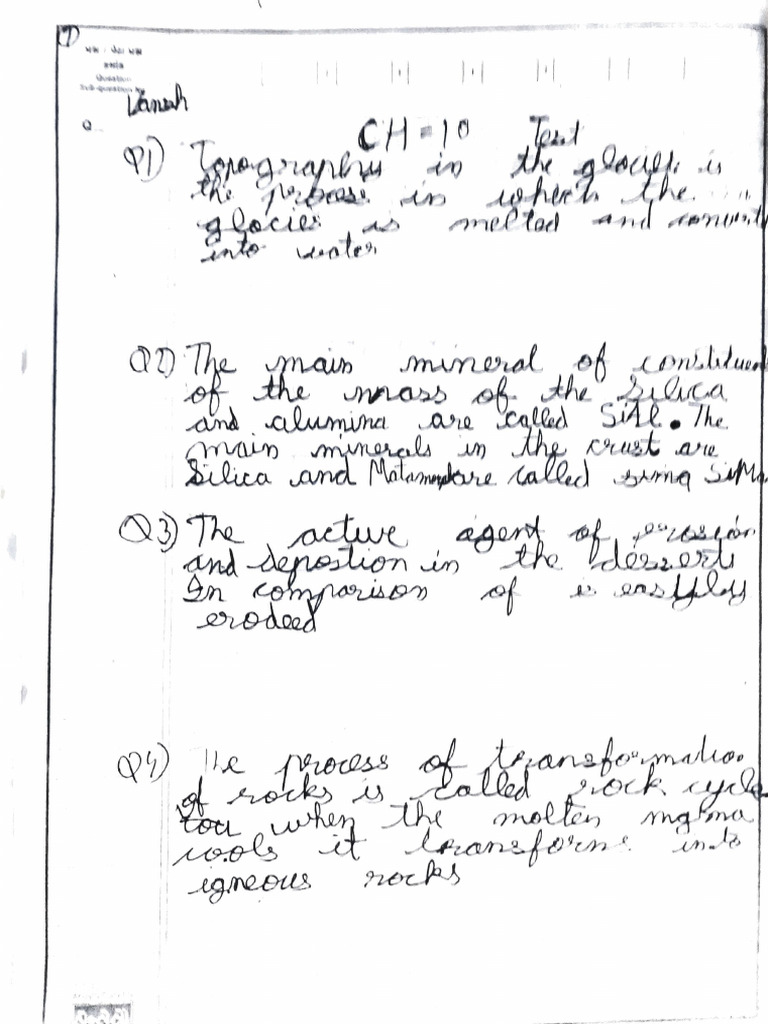 1
Question
Vansh
Q
CH = 10 Test
Q1) Topography in the glocier is
the process in which the
glocier is melted and convert
into water
Q2) The main mineral of constituen
of the mass of the Silica
and alumina are called SiAl. The
main minerals in the crust are
Silica and are called sima SiMa
Q3) The active agent of erosion
and depostion in the desserts
In comparison of
erodeed
Q4) The process of transformation
of rocks is called rock cycle
when the molten magma
cools it transforms into
igneous rocks